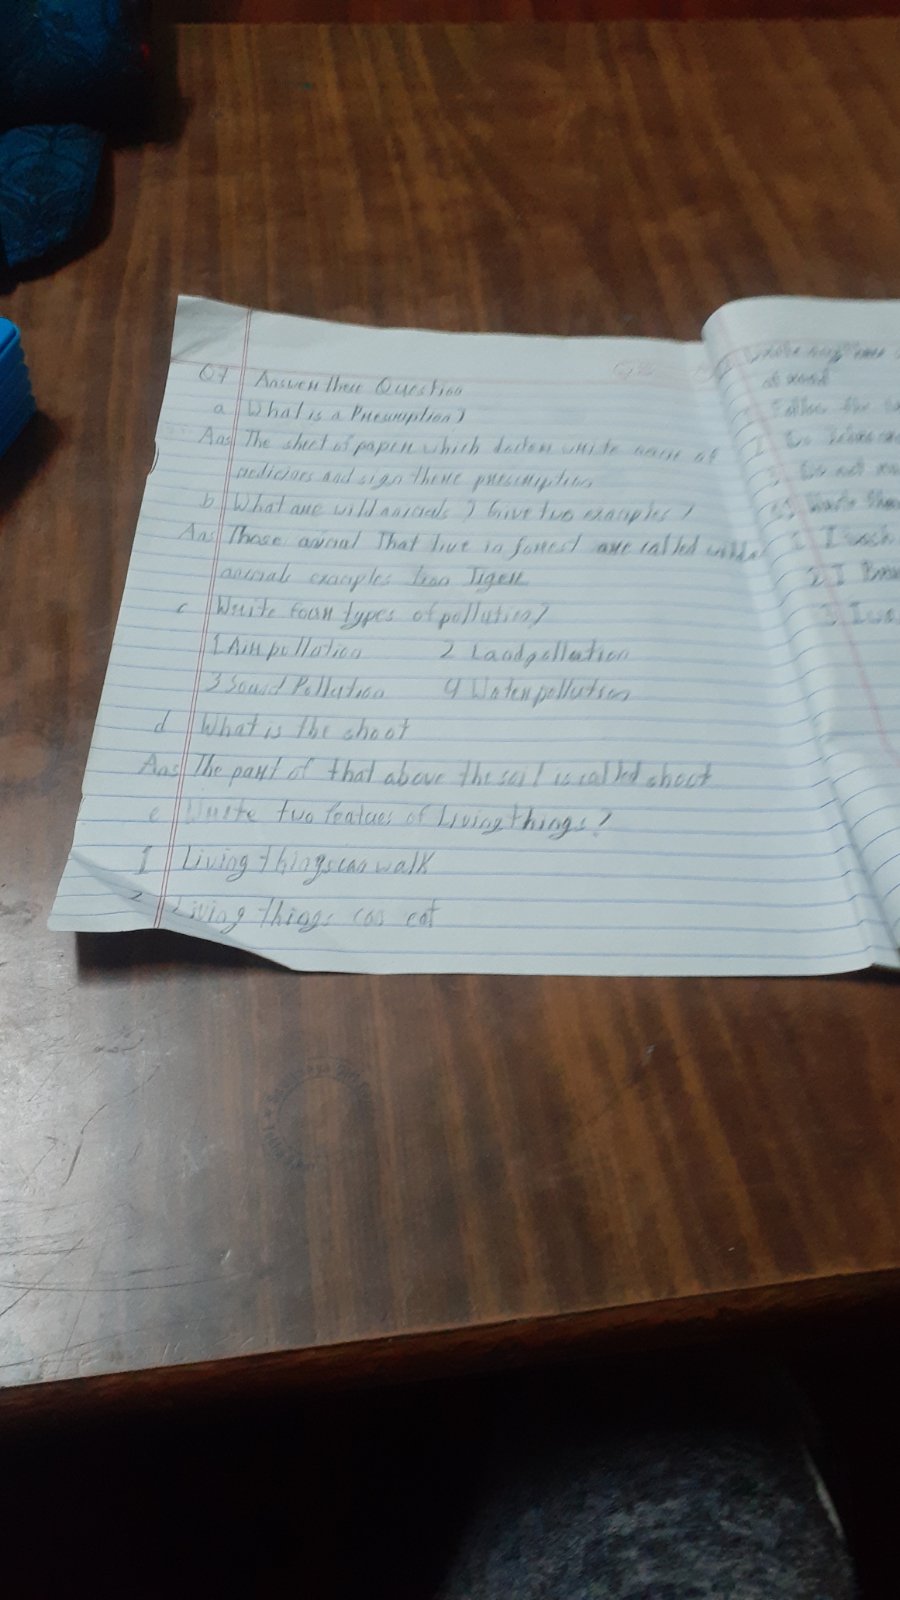 Q7 Answer these Question
a What is a Prescription?
Ans The sheet of paper which doctor write name of
medicines and sign there prescription
b What are wild animals? Give two examples?
Ans Those animal That live in forest are called wild
animals examples lion Tiger
c Write four types of pollution?
1 Air pollution 2 Land pollution
3 Sound Pollution 4 Water pollution
d What is the shoot
Ans The part of that above the soil is called shoot
e Write two featues of Living things?
1 Living things can walk
2 Living things can eat